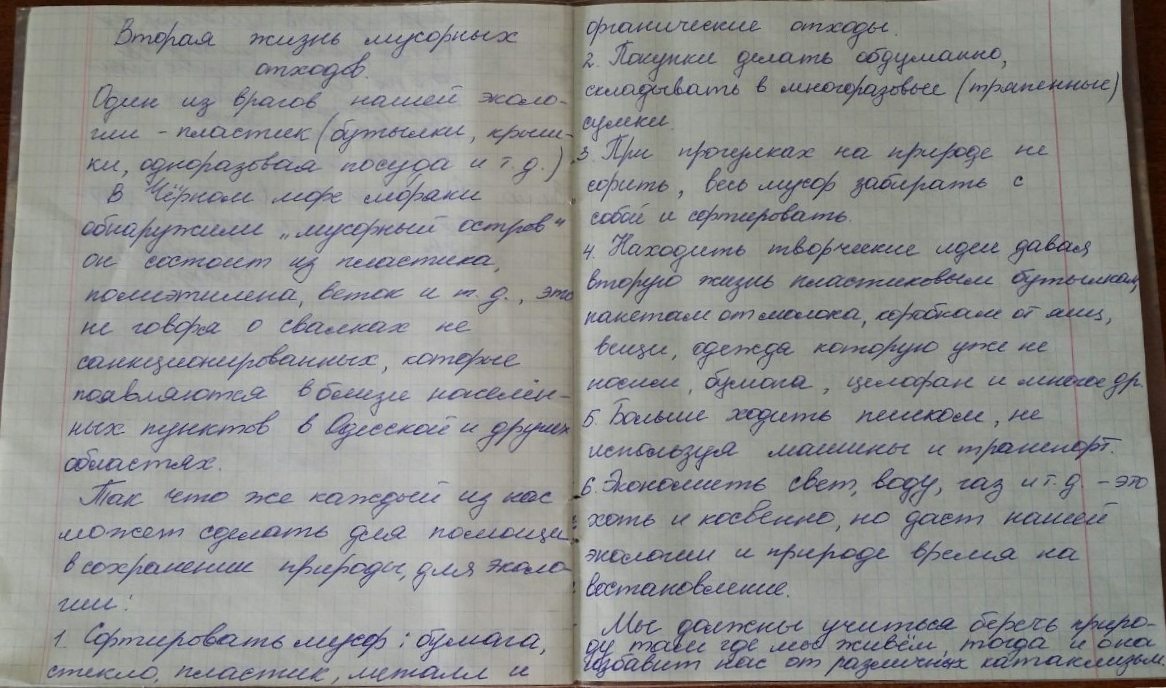 Вторая жизнь мусорных
отходов.
Один из врагов нашей эколо-
гии - пластик (бутылки, крыш-
ки, одноразовая посуда и т.д.)
В Чёрном море моряки
обнаружили „мусорный остров"
он состоит из пластика,
полиэтилена, веток и т.д., это
не говоря о свалках не
санкционированных, которые
появляются в близи населён-
ных пунктов в Одесской и других
областях.
Так что же каждый из нас
может сделать для помощи
в сохранении природы, для эколо-
гии:
1. Сортировать мусор: бумага,
стекло, пластик, металл и
органические отходы.
2. Покупки делать обдуманно,
складывать в многоразовые (тряпенные)
сумки.
3. При прогулках на природе не
сорить, весь мусор забирать с
собой и сортировать.
4. Находить творческие идеи давая
вторую жизнь пластиковым бутылкам,
пакетам от молока, коробкам от яиц,
вещи, одежда которую уже не
носим, бумага, целофан и многое др.
5. Больше ходить пешком, не
используя машины и транспорт.
6. Экономить свет, воду, газ и т.д - это
хоть и косвенно, но даст нашей
экологии и природе время на
востановление.
Мы должны учиться беречь приро-
ду там где мы живём, тогда и она
избавит нас от различных катаклизьм.